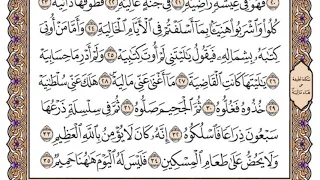 فَهُوَ فِي عِيشَةٍ رَّاضِيَةٍ ۝ فِي جَنَّةٍ عَالِيَةٍ ۝ قُطُوفُهَا دَانِيَةٌ ۝
كُلُوا۟ وَٱشْرَبُوا۟ هَنِيٓـًٔۢا بِمَآ أَسْلَفْتُمْ فِى ٱلْأَيَّامِ ٱلْخَالِيَةِ ۝٢٤ وَأَمَّا مَنْ أُوتِىَ
كِتَٰبَهُۥ بِشِمَالِهِۦ فَيَقُولُ يَٰلَيْتَنِى لَمْ أُوتَ كِتَٰبِيَهْ ۝٢٥ وَلَمْ أَدْرِ مَا حِسَابِيَهْ
۝٢٦ يَٰلَيْتَهَا كَانَتِ ٱلْقَاضِيَةَ ۝٢٧ مَآ أَغْنَىٰ عَنِّى مَالِيَهْ ۝٢٨ هَلَكَ عَنِّى سُلْطَٰنِيَهْ
۝٢٩ خُذُوهُ فَغُلُّوهُ ۝٣٠ ثُمَّ ٱلْجَحِيمَ صَلُّوهُ ۝٣١ ثُمَّ فِى سِلْسِلَةٍ ذَرْعُهَا
سَبْعُونَ ذِرَاعًا فَٱسْلُكُوهُ ۝٣٢ إِنَّهُۥ كَانَ لَا يُؤْمِنُ بِٱللَّهِ ٱلْعَظِيمِ ۝٣٣
وَلَا يَحُضُّ عَلَىٰ طَعَامِ ٱلْمِسْكِينِ ۝٣٤ فَلَيْسَ لَهُ ٱلْيَوْمَ هَٰهُنَا حَمِيمٌ ۝٣٥